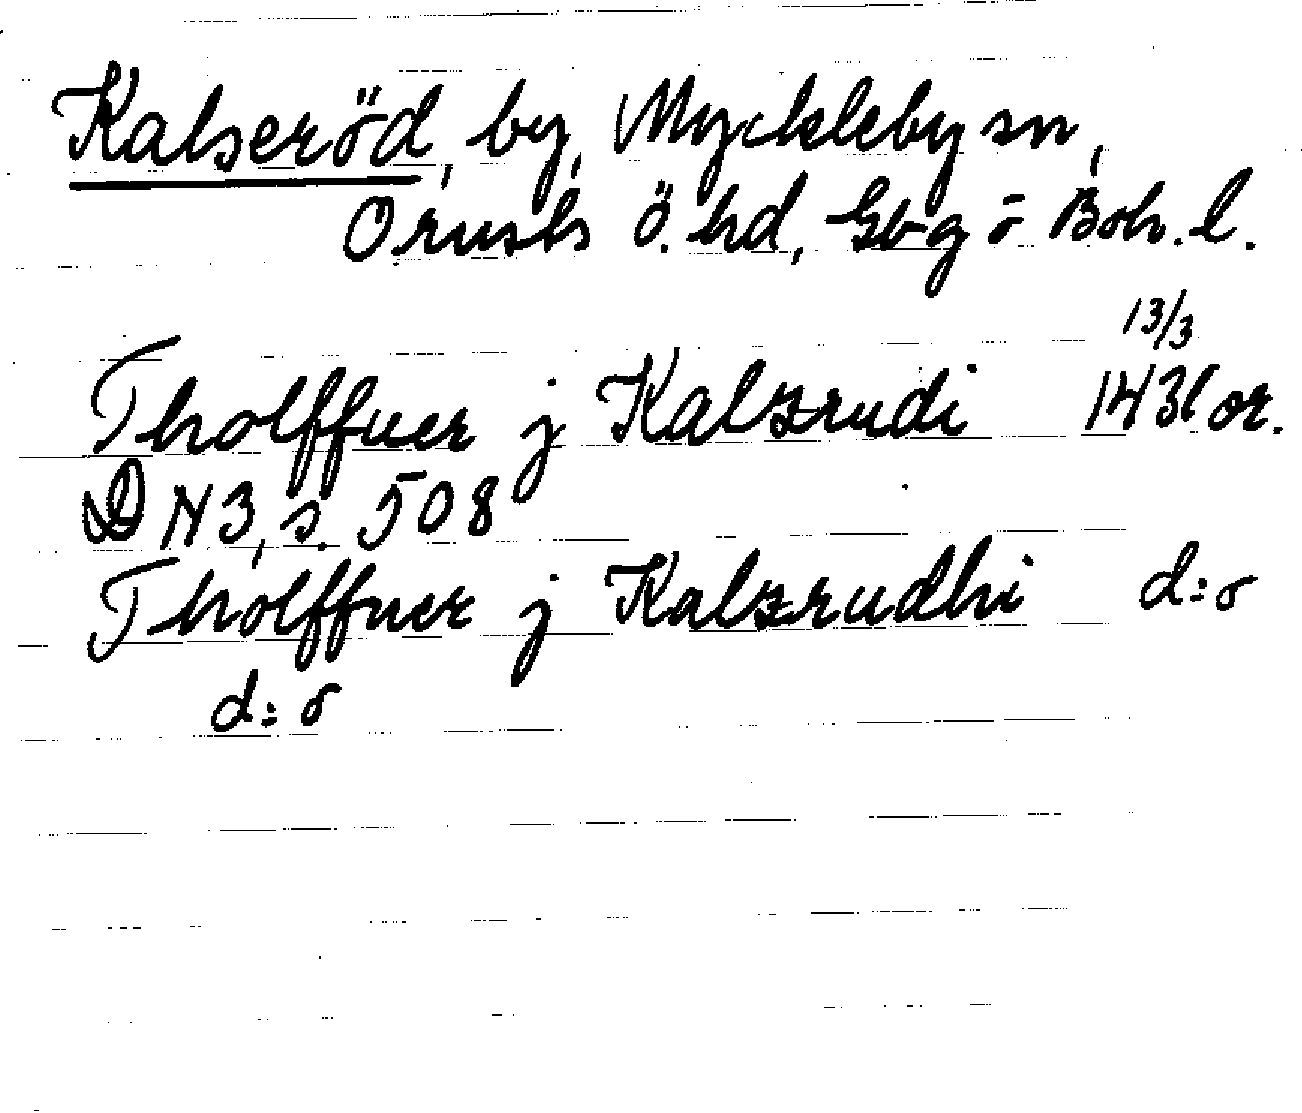 Kalseröd, by, Myckleby sn,
Orusts ö. hd, Gbg o Boh. l.
13/3
Tholffuer j Kalzrudi 1431 or.
DN 3, s. 508
Tholffuer j Kalzrudhi d:o
d:o